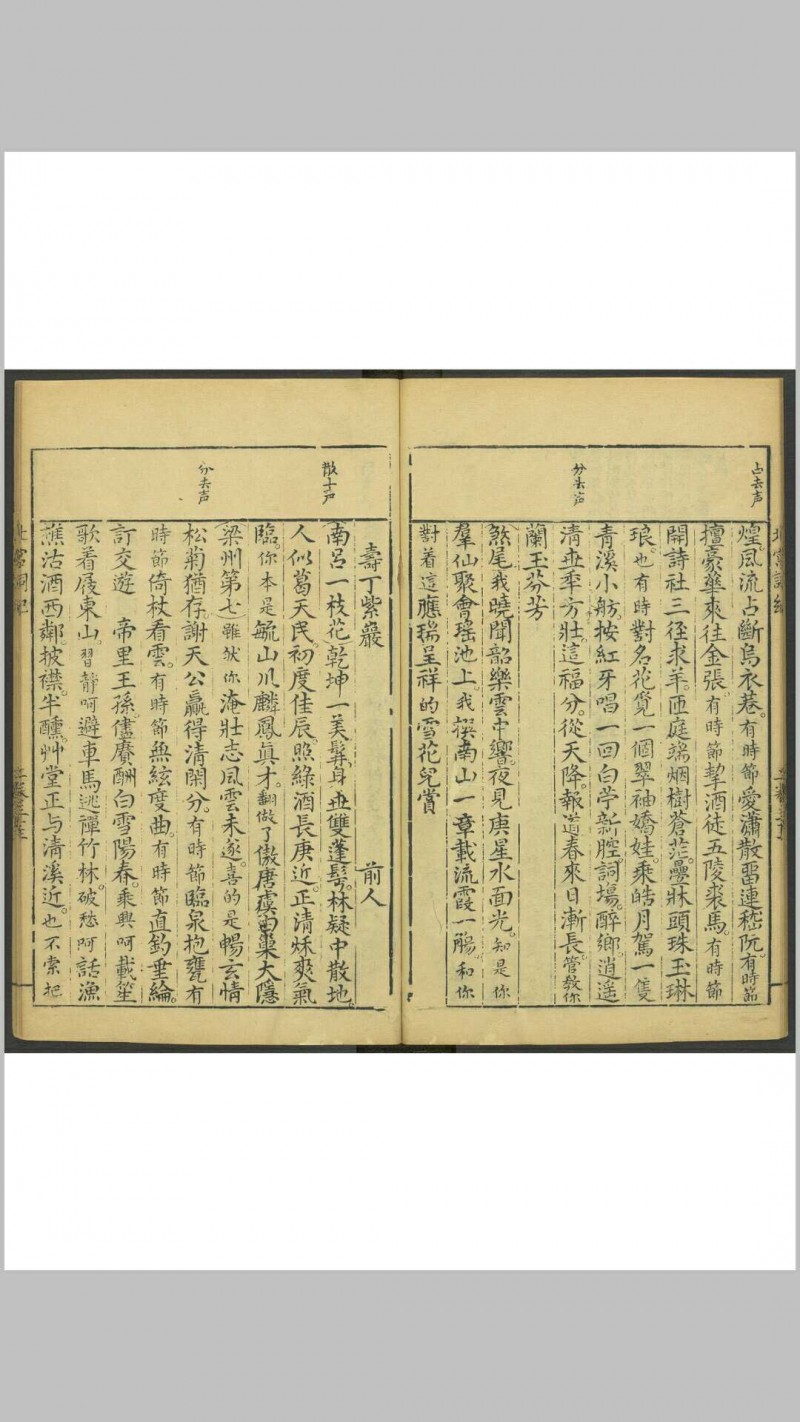 占去声
分去声
煌。風流占斷烏衣巷。有時節愛瀟散畱連嵇阮。有時節
擅豪華來往金張。有時節挈酒徒五陵裘馬。有時節
開詩社三徑求羊。匝庭端烟樹蒼茫。疊牀頭珠玉琳
琅。也有時對名花覓一個翠袖嬌娃。乘皓月駕一隻
青溪小舫。按紅牙唱一回白苧新腔。詞場。醉鄉。逍遥
淸世秊方壯。這福分。從天降。報道春來日漸長。管教你
蘭玉芬芳
煞尾我曉聞韶樂雲中響。夜見庚星水面光。知是你
羣仙聚會瑤池上。我撰南山一章載流霞一觴。和你
對着這應瑞呈祥的雪花兒賞
散上声
分去声
壽丁紫巖 前人
南呂一枝花乾坤一美髯。身世雙蓬鬂。林疑中散地。
人似葛天民。初度佳辰。照綠酒長庚近。正清秌爽氣
臨。你本是毓山川麟鳳眞才。翻做了傲唐虞由巢大隱
梁州第七雖然你淹壯志風雲未遂。喜的是暢玄情
松菊猶存。謝天公贏得淸閑分。有時節臨泉抱甕有
時節倚杖看雲。有時節無絃度曲。有時節直鈎垂綸。
訂交遊 帝里王孫。儘賡酬白雪陽春。乘興呵載笙
歌着屐東山。習靜呵避車馬逃禪竹林。破愁呵話漁
樵沽酒西鄰。披襟。半醺。艸堂正与清溪近。也不索把